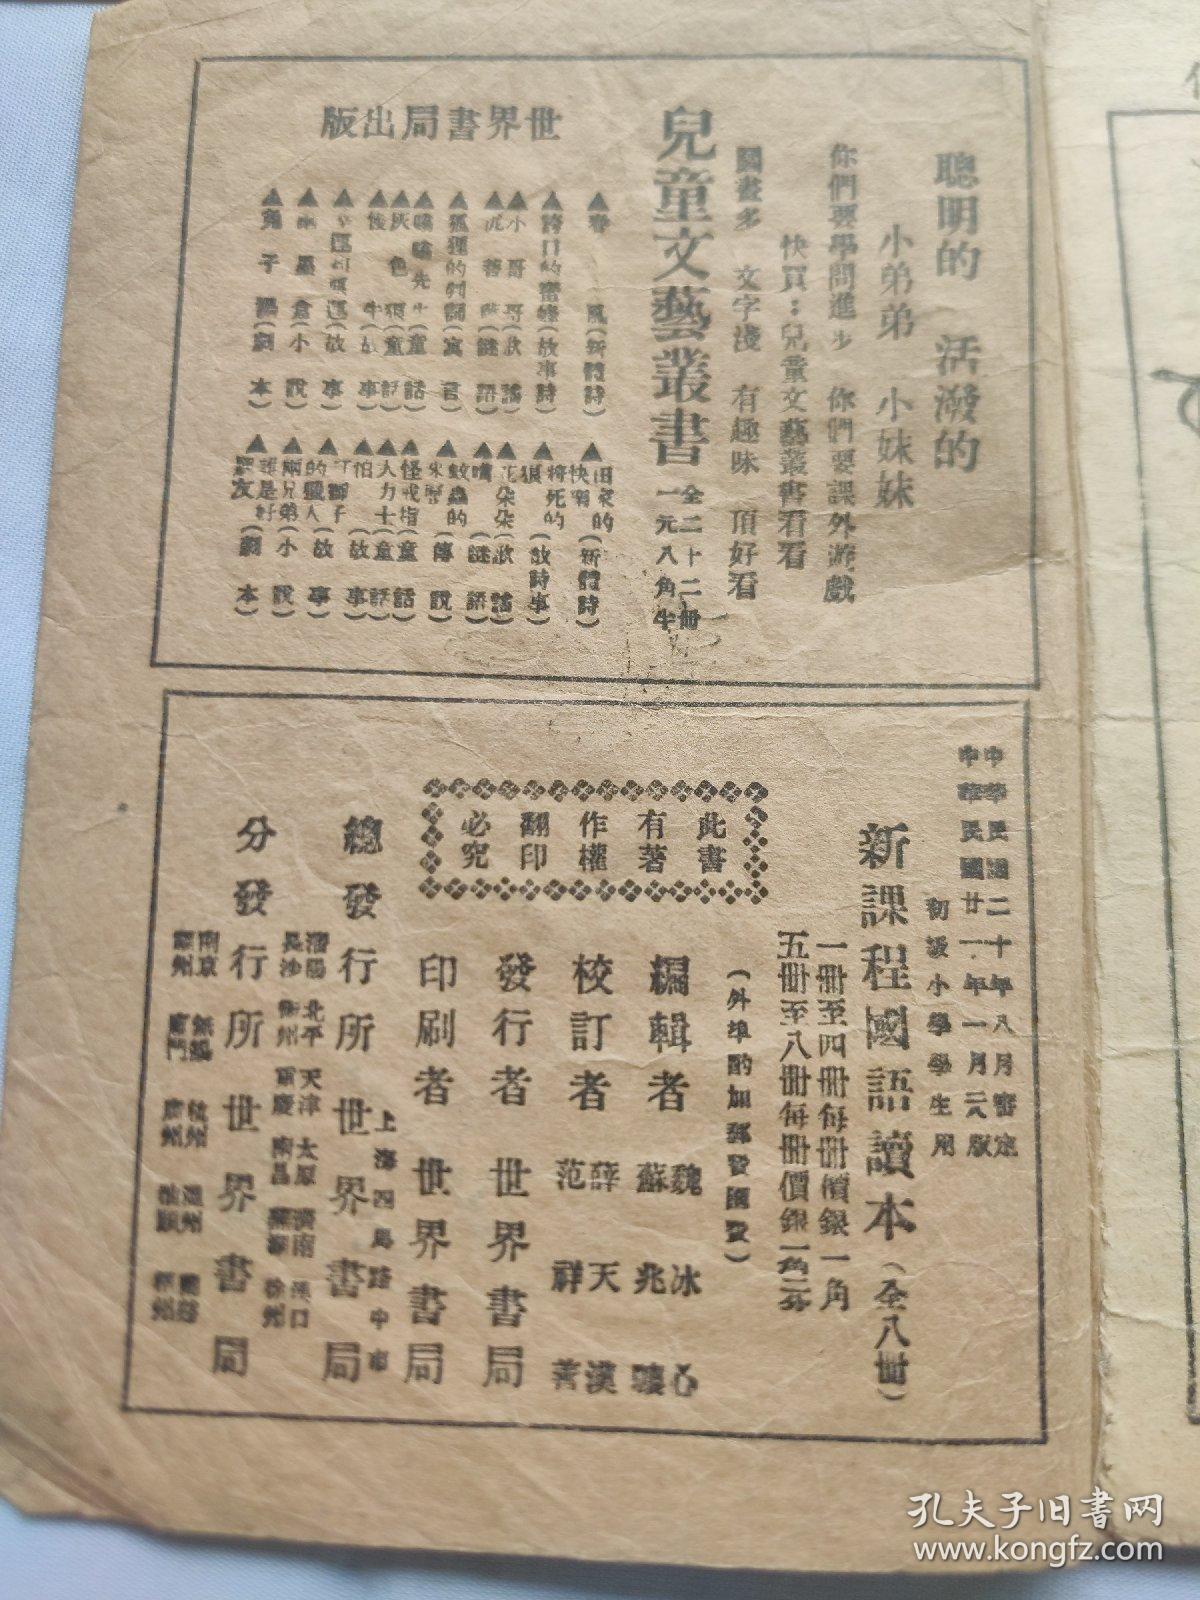 聰明的　活潑的
小弟弟　小妹妹
你們要學問進步　你們要課外遊戲
快買：兒童文藝叢書看看
圖畫多　文字淺　有趣味　頂好看
兒童文藝叢書
全二十二冊
一元八角半
世界書局出版
▲春風(新體詩)
▲誇口的蜜蜂(故事詩)
▲小哥哥(歌謠)
▲(謎語)
▲狐狸的判詞(寓言)
▲嗡嗡先生(童話)
▲灰色(童話)
▲牛(故事)
(故事)
(小說)
▲兔子(劇本)
▲田家的快樂(新體詩)
▲將死的狼(故事詩)
▲花朵朵(歌謠)
▲(謎語)
▲蚊蟲的來歷(傳說)
▲怪戒指(童話)
▲大力士(童話)
(故事)
▲獅子的獵人(故事)
▲兩兄弟(小說)
▲誰是好朋友(劇本)
中華民國二十年八月審定
中華民國廿一年一月二八版
初級小學學生用
新課程國語讀本(全八冊)
一冊至四冊每冊價銀一角
五冊至八冊每冊價銀一角二分
(外埠酌加郵發匯費)
此書
有著
作權
翻印
必究
編輯者　魏冰心　蘇兆驤
校訂者　薛天漢　范祥善
發行者　世界書局
印刷者　世界書局
上海四馬路中市
總發行所　世界書局
瀋陽　北平　天津　太原　濟南　漢口
長沙　衡州　重慶　南昌　蕪湖　徐州
分發行所　世界書局
南京　無錫　杭州　溫州
廈門　廣州
孔夫子旧书网
www.kongfz.com